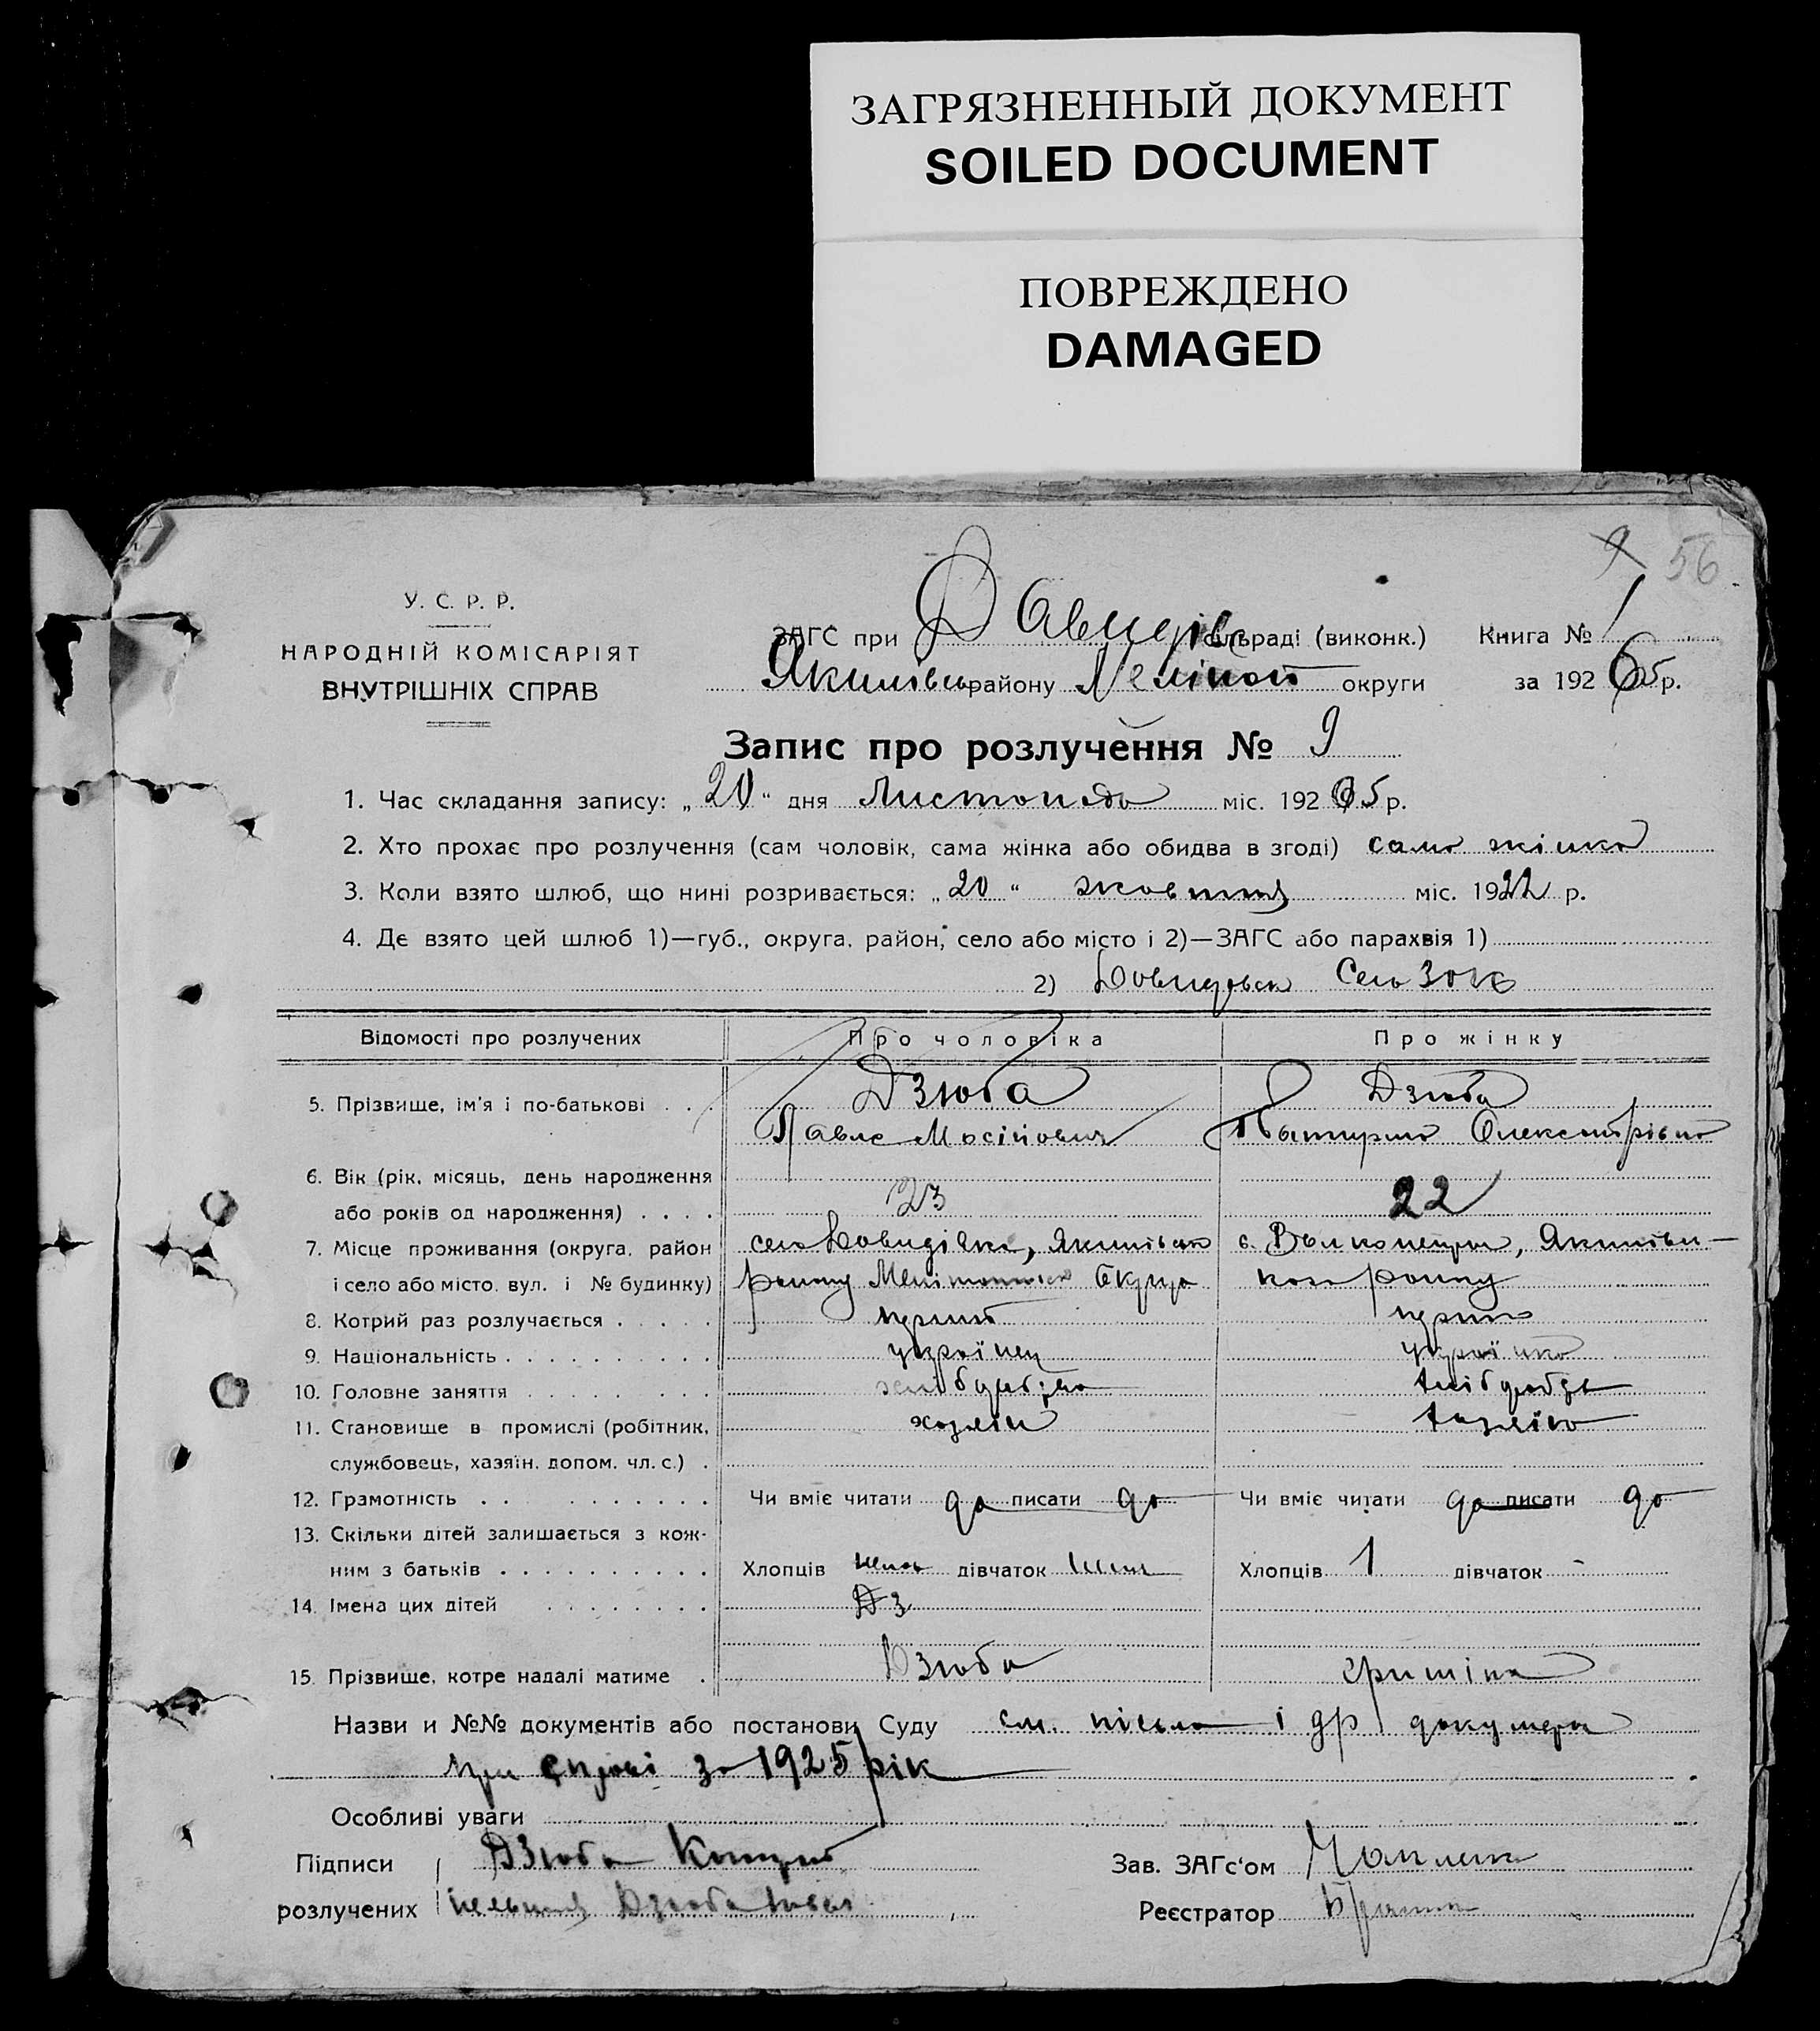 ЗАГРЯЗНЕННЫЙ ДОКУМЕНТ
SOILED DOCUMENT
ПОВРЕЖДЕНО
DAMAGED
9 56
У. С. Р. Р.
НАРОДНІЙ КОМІСАРІЯТ
ВНУТРІШНІХ СПРАВ
ЗАГС при Давидівс сільраді (виконк.) Книга № 1
Якимівськ району Меліт округи за 192 5 р.
Запис про розлучення № 9
1. Час складання запису: „20“ дня Листопада міс. 192 5 р.
2. Хто прохає про розлучення (сам чоловік, сама жінка або обидва в згоді) сама жінка
3. Коли взято шлюб, що нині розривається: „20“ жовтня міс. 1922 р.
4. Де взято цей шлюб 1)—губ., округа, район, село або місто і 2)—ЗАГС або парахвія 1)
2) Довидовск Сель ЗАГС
Відомості про розлучених Про чоловіка Про жінку
5. Прізвище, ім'я і по-батькові . . . Дзюба Дзюба
Павло Мосійович Олександрівна
6. Вік (рік, місяць, день народження
або років од народження) . . . . 23 22
7. Місце проживання (округа, район село Довидівка, Якимівсько с. Вовконешти, Якимівс—
і село або місто, вул. і № будинку) району Мелітопольск Округа кого району
8. Котрий раз розлучається . . . . . перший перший
9. Національність . . . . . . . . . . українец українка
10. Головне заняття . . . . . . . . хліборобство хліборобст
11. Становище в промислі (робітник, хазяїн хазяїка
службовець, хазяїн, допом. чл. с.) .
12. Грамотність . . . . . . . . . Чи вміє читати да писати да Чи вміє читати да писати да
13. Скільки дітей залишається з кож-
ним з батьків . . . . . . . . . . Хлопців нема дівчаток нема Хлопців 1 дівчаток -
14. Імена цих дітей . . . . . . . . Дз
15. Прізвище, котре надалі матиме . Дзюба Гришіна
Назви и №№ документів або постанови Суду см. письма і др документи
при справі за 1925 рік
Особливі уваги
Підписи Дзюба Зав. ЗАГс'ом
розлучених Дзюба Павел Реєстратор